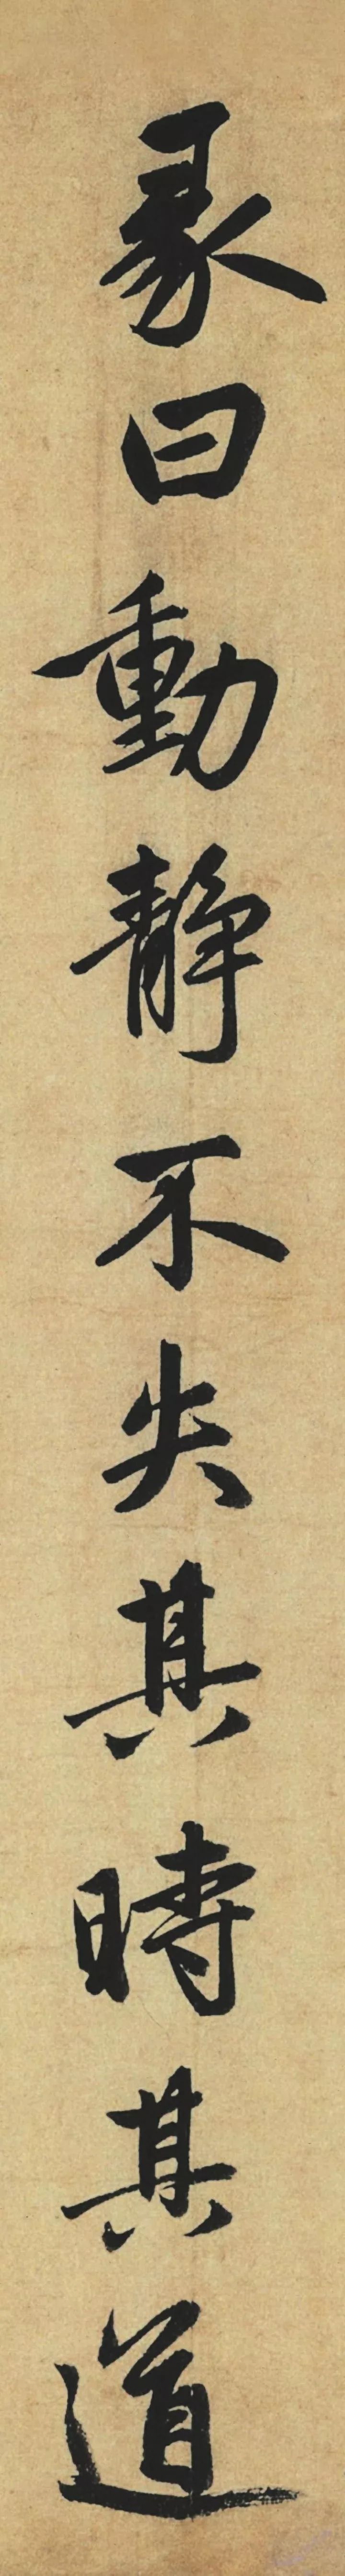 彖曰動静不失其時其道